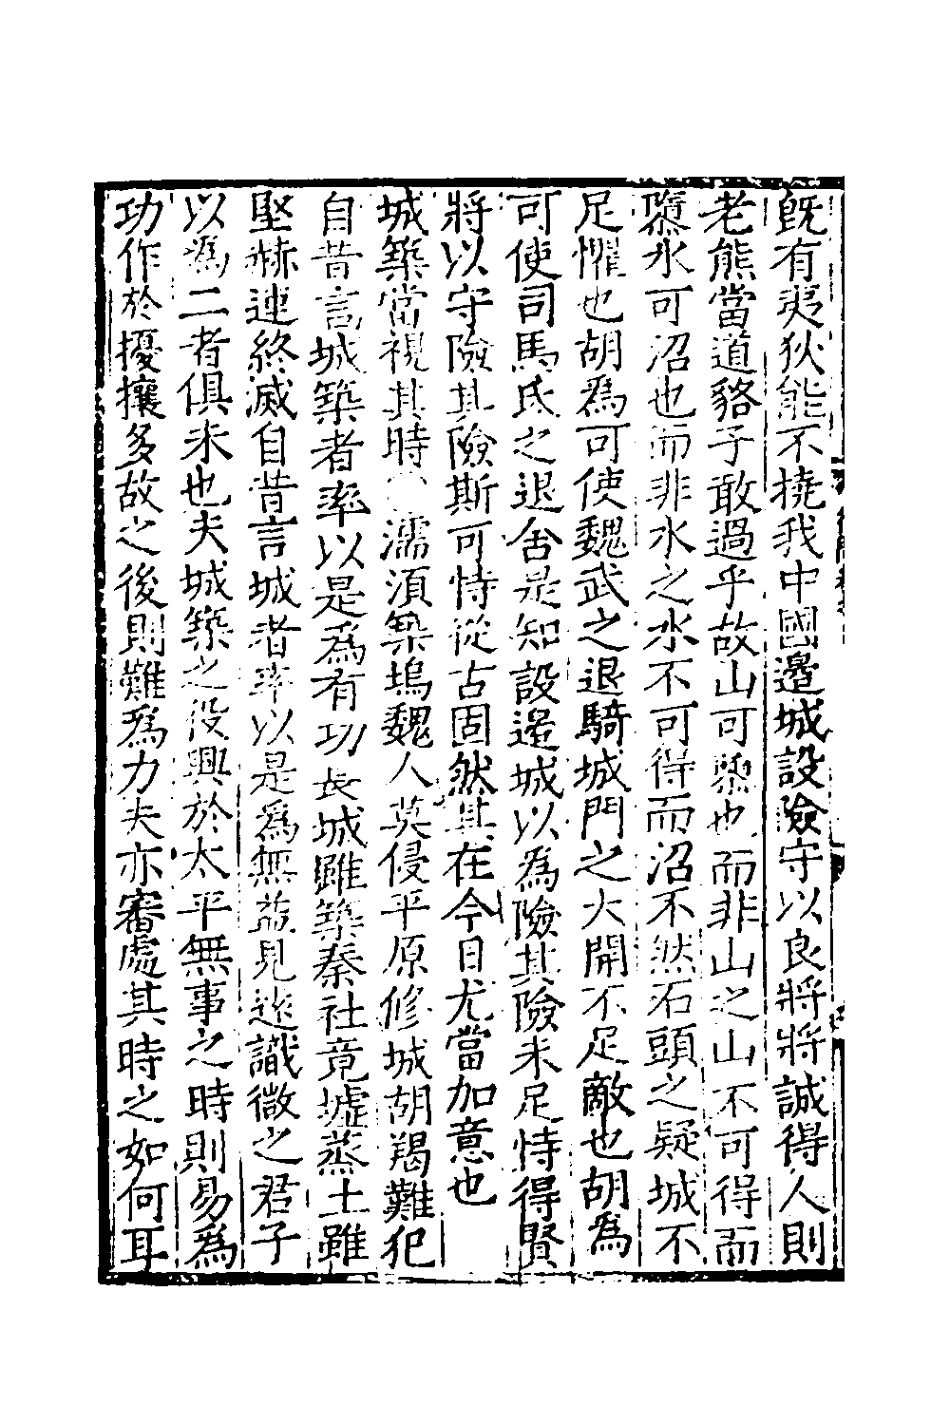 既有夷狄能不撓我中國邊城設險守以良將將誠得人則
老熊當道貉子敢過乎故山可隳也而非山之山不可得而
隳水可沼也而非水之水不可得而沼不然石頭之疑城不
足懼也胡為可使魏武之退騎城門之大開不足敵也胡為
可使司馬氏之退舍是知設邊城以為險其險未足恃得賢
將以守險其險斯可恃從古固然其在今日尤當加意也
城築當視其時 濡須築塢魏人莫侵平原修城胡羯難犯
自昔言城築者率以是為有功長城雖築秦社竟墟蒸土雖
堅赫連終滅自昔言城者率以是為無益見迷識微之君子
以為二者俱未也夫城築之役興於太平無事之時則易為
功作於擾攘多故之後則難為力夫亦審處其時之如何耳